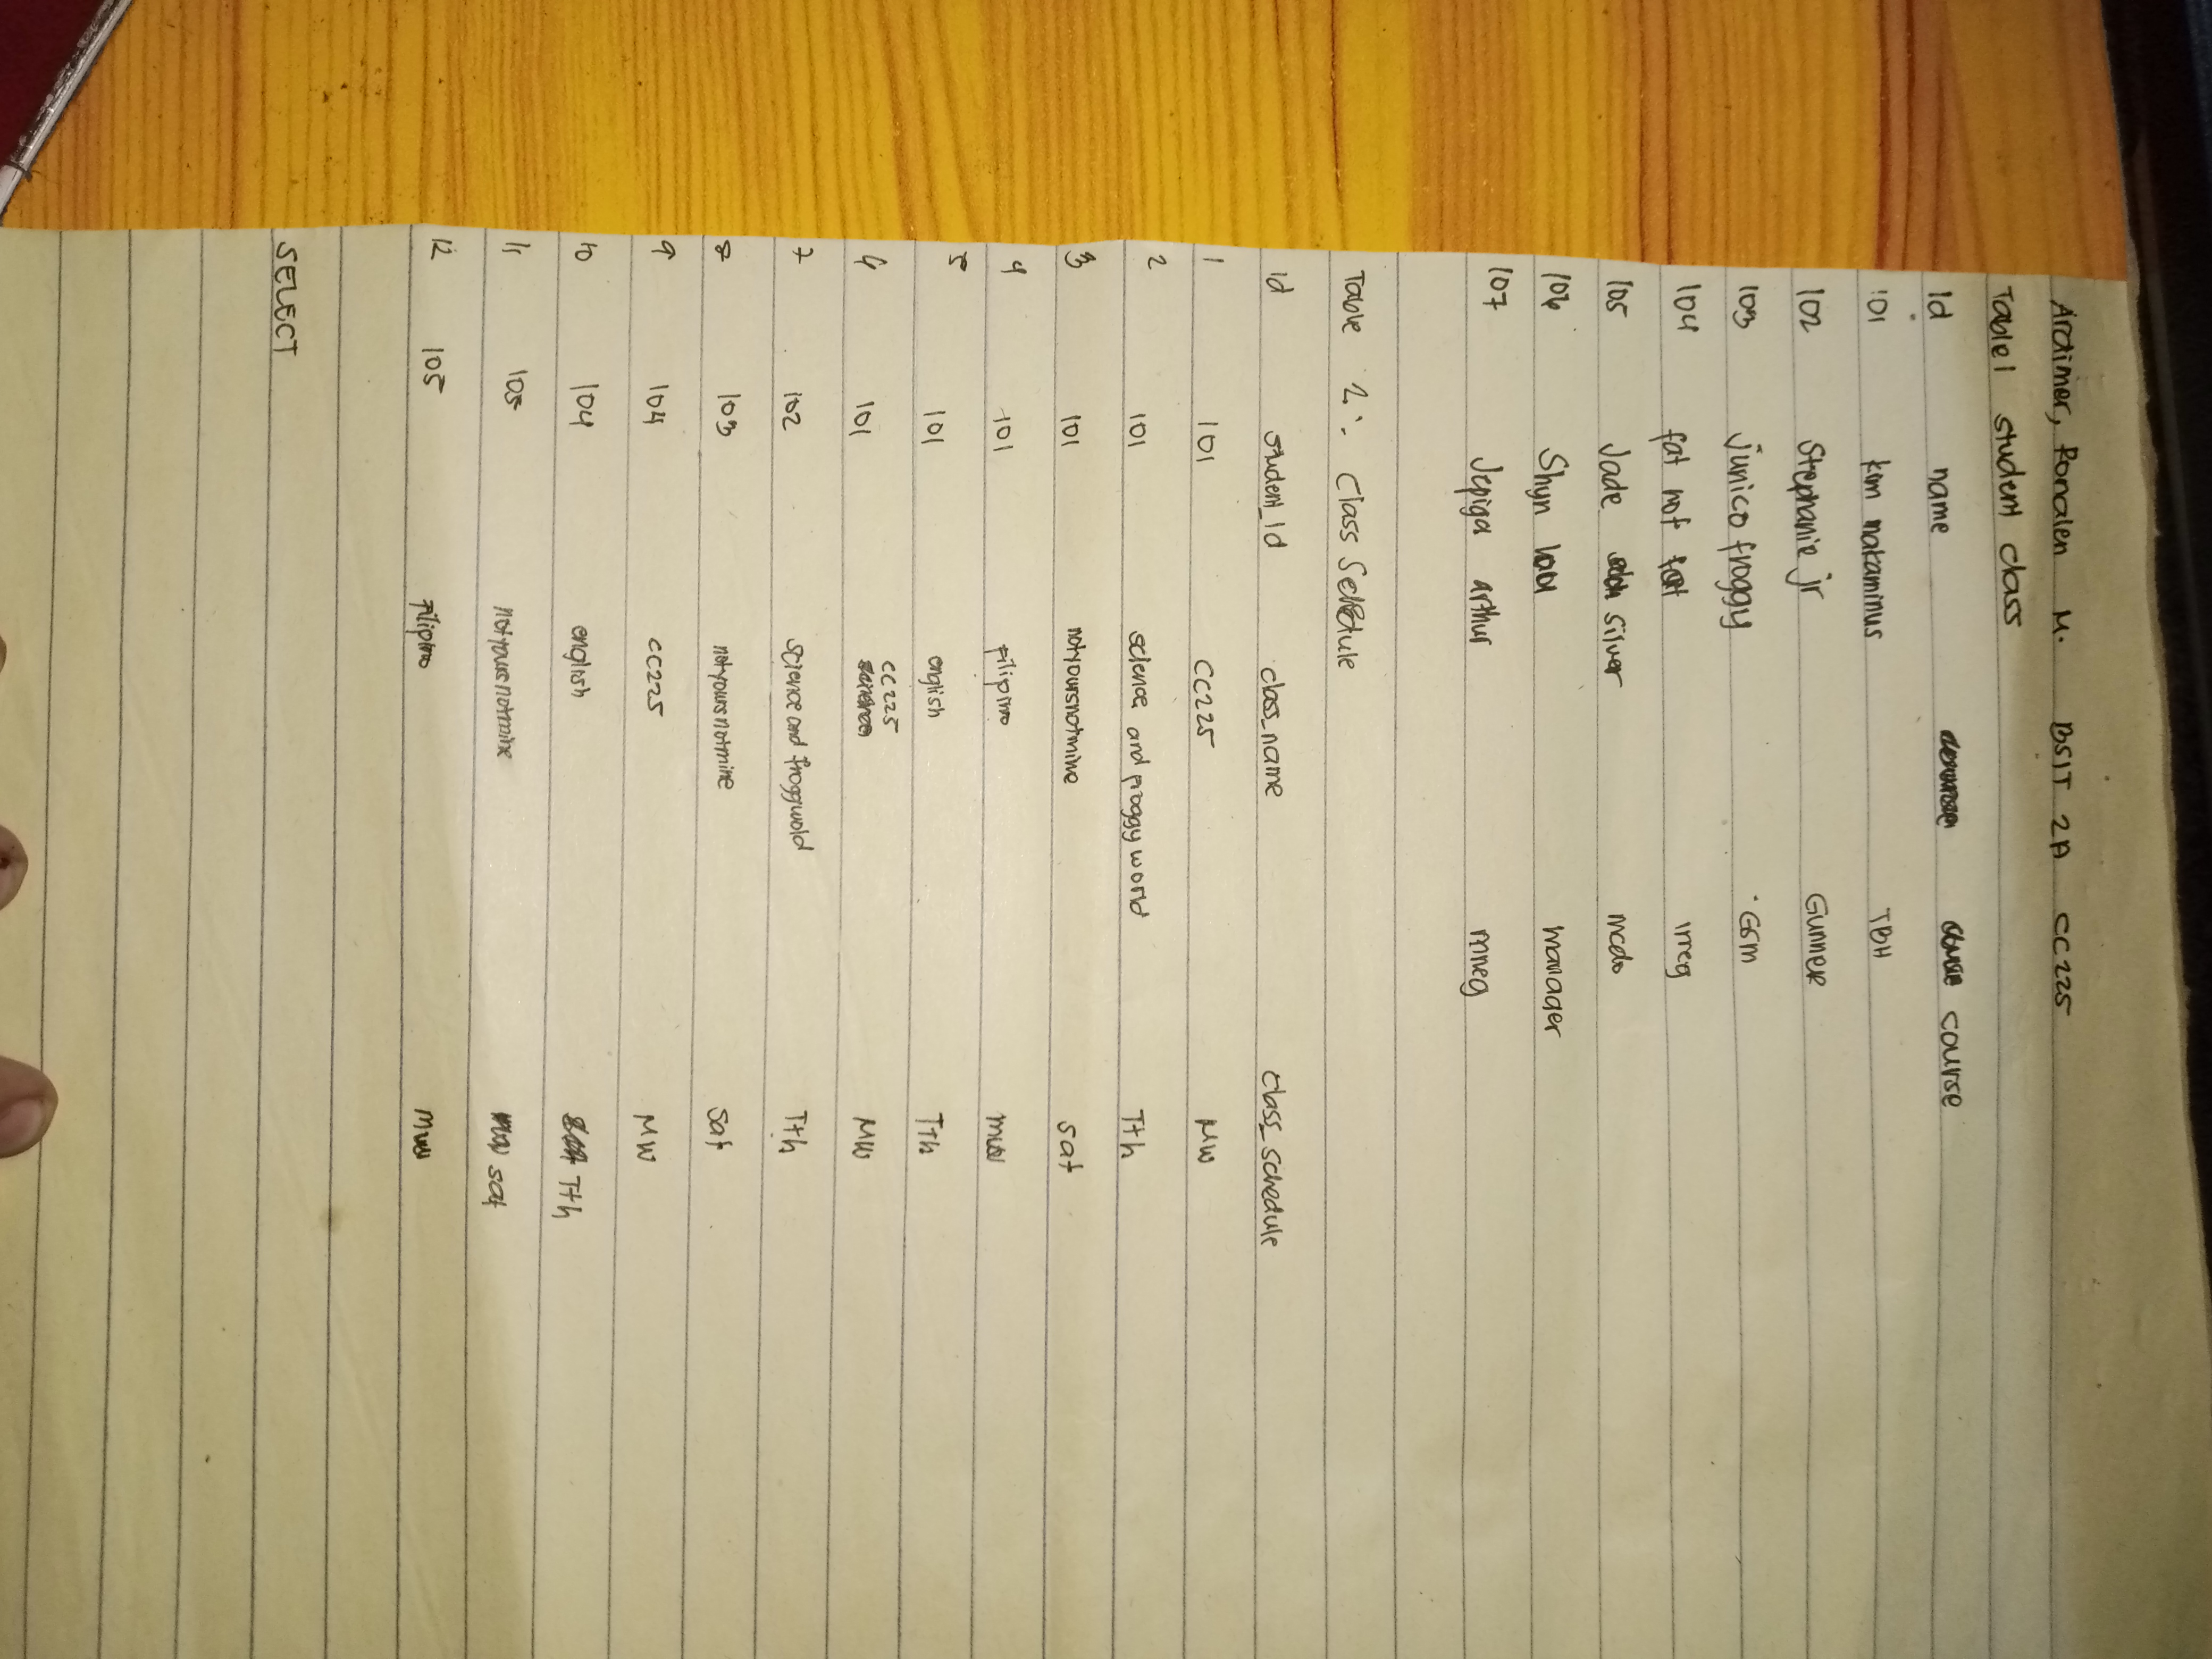 Ardimer, Ronalen M. BSIT 2A CC225
Table 1 student class
Id name course
101 kim nakaminus TBH
102 Stephanie jr Gunner
103 junico froggy GSM
104 fat not fat irreg
105 Jade silver mcdo
106 Shyn manager
107 Jepiga arthur rrneg
Table 2: Class Schedule
Id student_Id class_name class_schedule
1 101 CC225 MW
2 101 science and froggy world Tth
3 101 notyoursnotmine sat
4 101 Filipino mw
5 101 english Tth
6 101 CC225 MW
7 102 science and froggywold Tth
8 103 notyoursnotmine Sat
9 104 CC225 MW
10 104 english Tth
11 105 notyoursnotmine sat
12 105 Filipino mw
SELECT